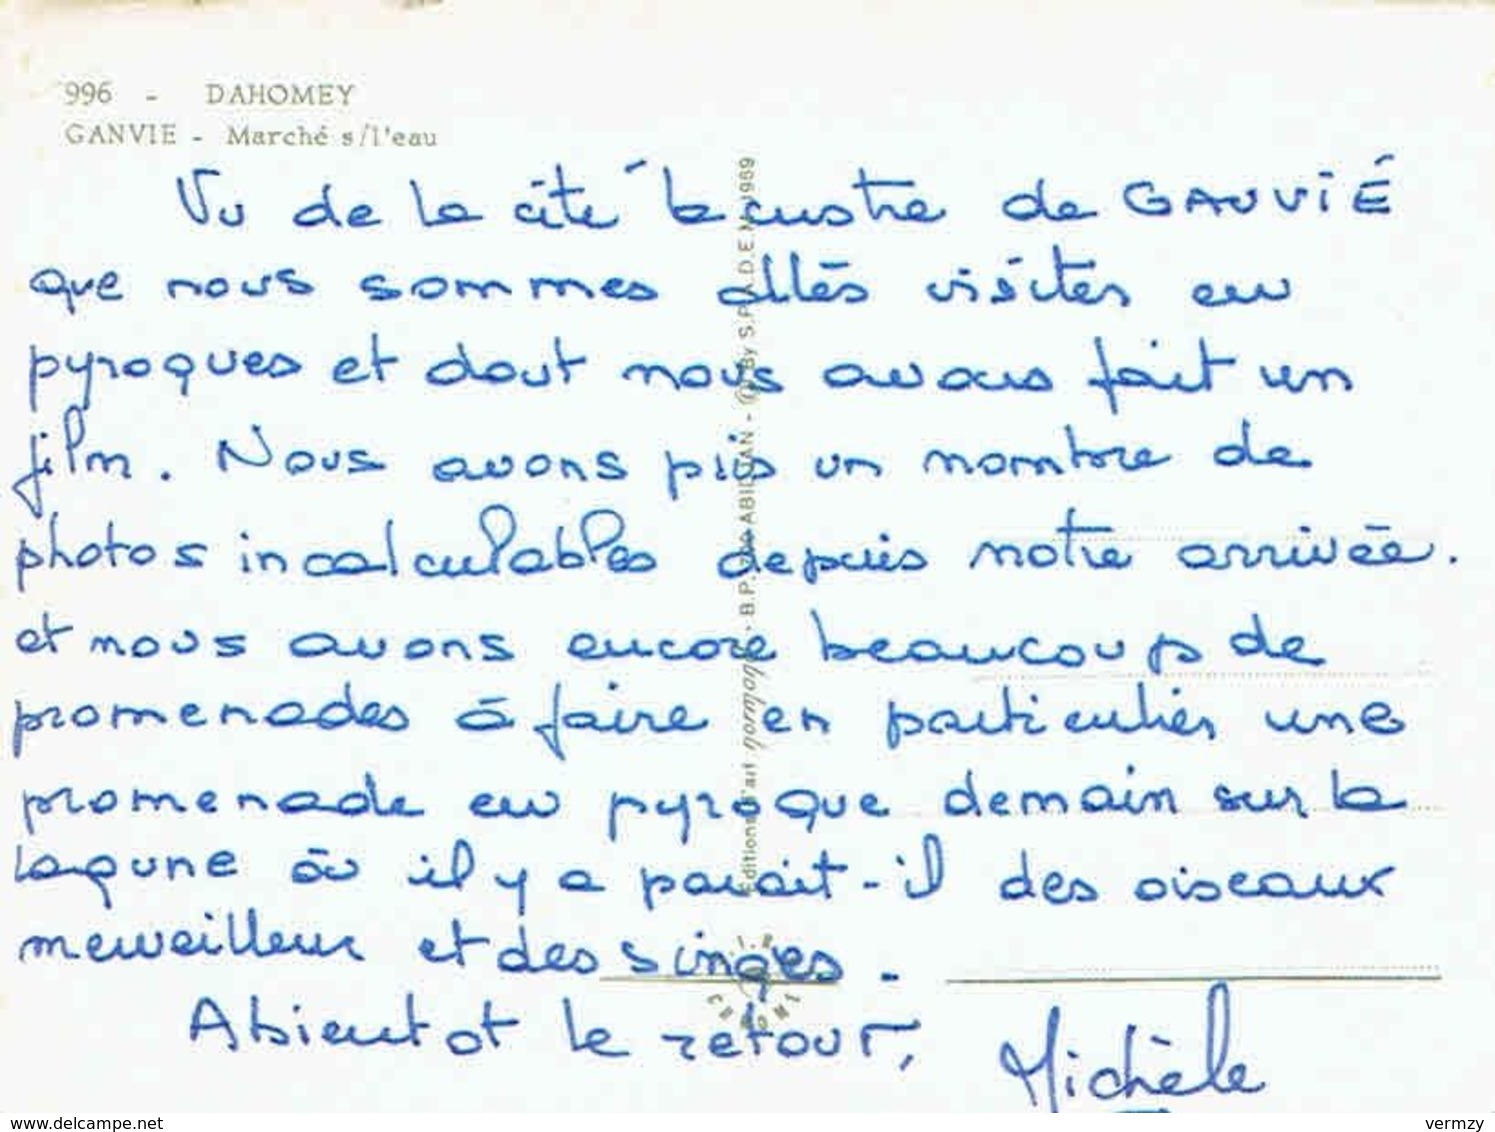 996 - DAHOMEY
GANVIE - Marché s/l'eau
Vu de la cité lacustre de GANVIÉ
que nous sommes allés visiter en
pyroques et dont nous avons fait un
film. Nous avons pris un nombre de
photos incalculables depuis notre arrivée.
et nous avons encore beaucoup de
promenades à faire en particulier une
promenade en pyroque demain sur la
lagune où il y a parait-il des oiseaux
merveilleux et des singes.
Abientot le retour,
Michèle
Editions d'art B.P. ABIDJAN - By S.P.A.D.E.M. 1969
www.delcampe.net
vermzy